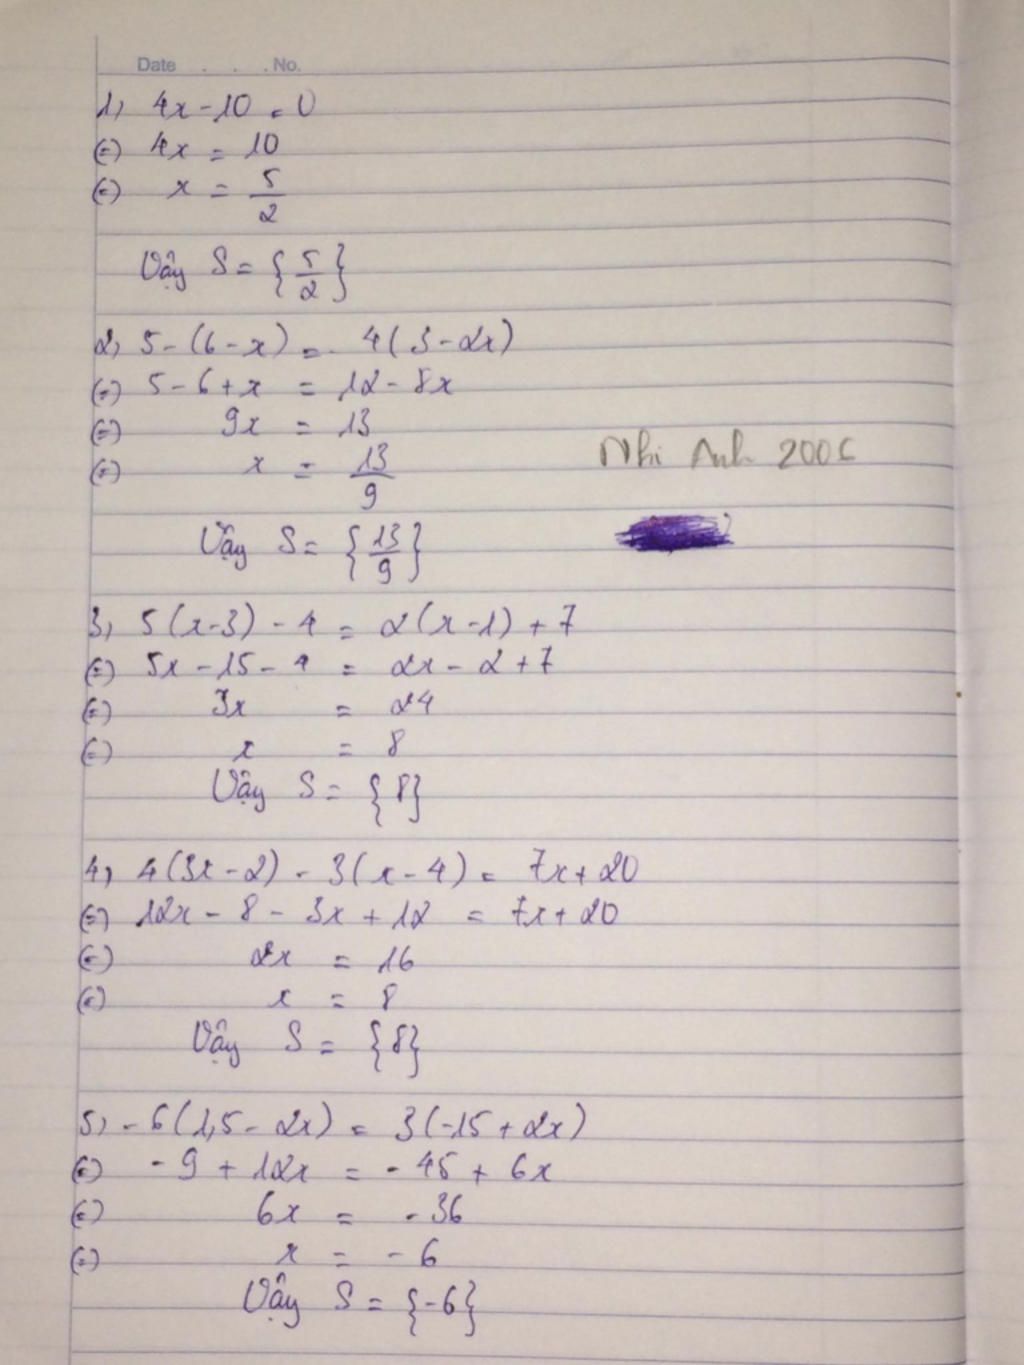 Date . . . No.
1, 4x - 10 = 0
(=) 4x = 10
(=) x = 5/2
Vậy S = {5/2}
2, 5 - (6 - x) = 4(3 - 2x)
(=) 5 - 6 + x = 12 - 8x
(=) 9x = 13
(=) x = 13/9
Nhi Anh 2006
Vậy S = {13/9}
3, 5(x - 3) - 4 = 2(x - 1) + 7
(=) 5x - 15 - 4 = 2x - 2 + 7
(=) 3x = 24
(=) x = 8
Vậy S = {8}
4, 4(3x - 2) - 3(x - 4) = 7x + 20
(=) 12x - 8 - 3x + 12 = 7x + 20
(=) 2x = 16
(=) x = 8
Vậy S = {8}
5, -6(1,5 - 2x) = 3(-15 + 2x)
(=) -9 + 12x = -45 + 6x
(=) 6x = -36
(=) x = -6
Vậy S = {-6}